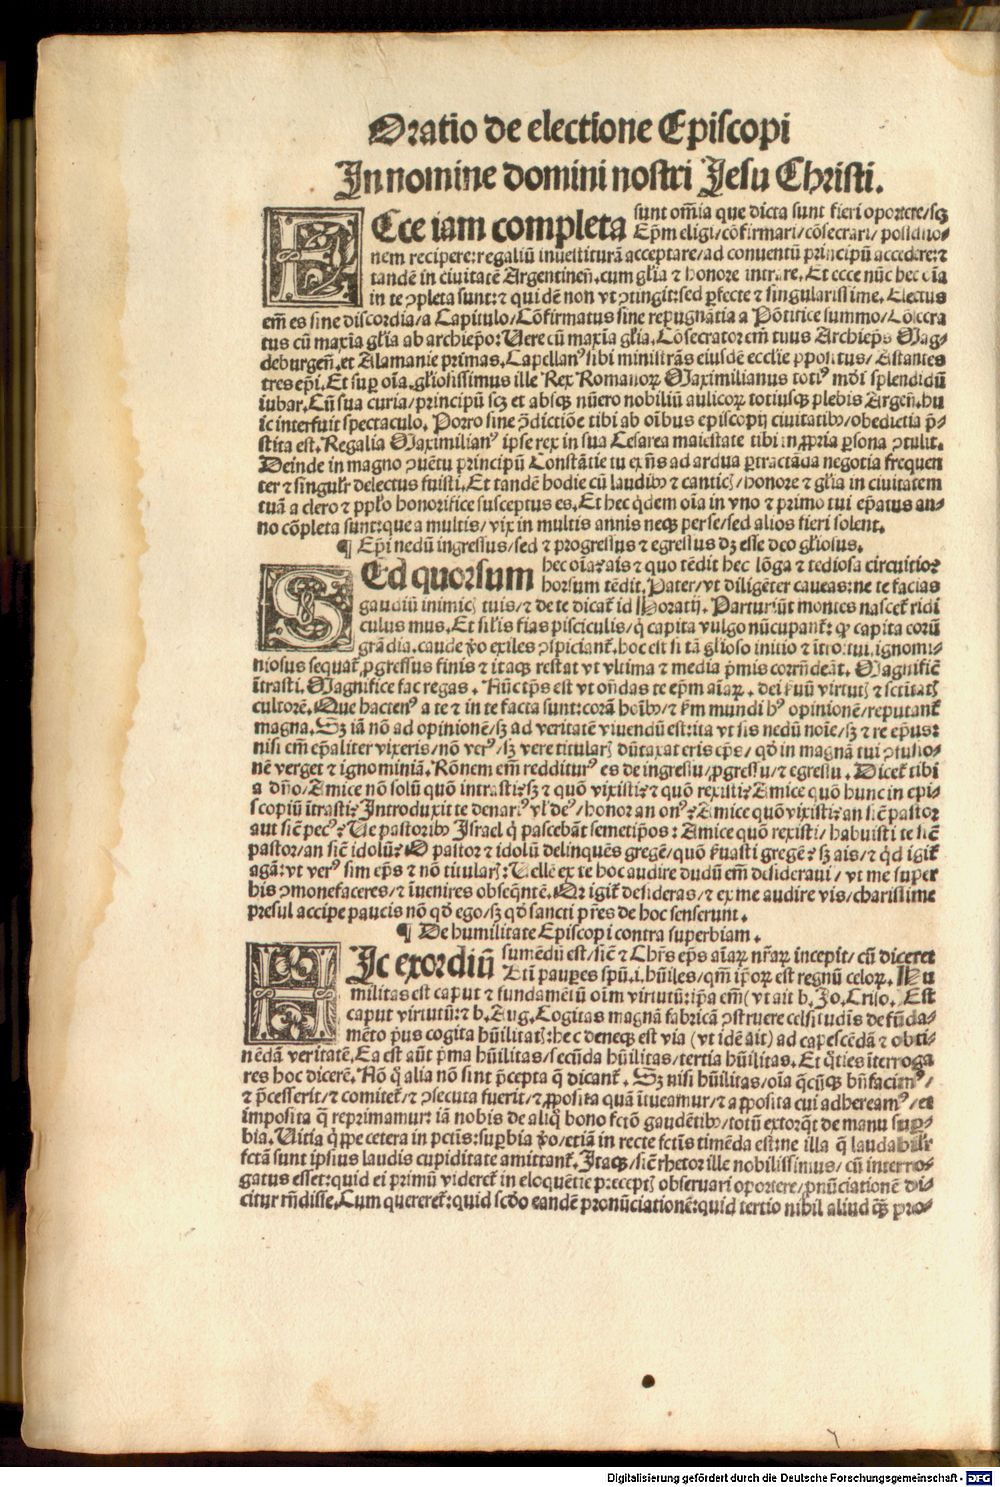 Oratio de electione Episcopi
In nomine domini nostri Jesu Christi.
ECce iam completa sunt om̄ia que dicta sunt fieri oportere/scꝫ
Ep̄m eligi/cōfirmari/cōsecrari/
nem recipere:regaliū inuestiturā acceptare/ad conuentū principū accedere:⁊
tandē in ciuitatē Argentineñ.cum gl̄ia ⁊ honore intrare. Et ecce nūc hec oīa
in te ꝯpleta sunt:⁊ qui dē non vt ꝯtingit:sed ꝑfecte ⁊ singularissime. Electus
em̄ es sine discordia/a Capitulo/Cōfirmatus sine repugnātia a Pōtifice summo/Cōsecra
tus cū maxīa gl̄ia ab archiep̄o:Uere cū maxīa gl̄ia. Cōsecrator em̄ tuus Archiep̄s Mag-
deburgeñ.et Alamanie primas. Capellanꝰ sibi ministrās eiusdē ecclīe ꝓpositus/Astantes
tres ep̄i. Et suꝑ oīa.gl̄iosissimus ille Rex Romanoꝝ Maximilianus totiꝰ mōi splendidū
iubar. Cū sua curia/principū scꝫ et absqꝫ nūero nobiliū aulicoꝝ totiusqꝫ plebis Argeñ.hu
ic interfuit spectaculo. Porro sine ꝯdictiōe tibi ab oībus episcopij ciuitatibꝫ/obedietia p̄-
stita est. Regalia Maximilianꝰ ipse rex in sua Cesarea maiestate tibi in ꝓpria ꝑsona ꝯtulit.
Deinde in magno ꝯuētu principū Constātie tu exn̄s ad ardua ꝑtractāda negotia frequen
ter ⁊ singulr̄ delectus fuisti. Et tandē hodie cū laudibꝫ ⁊ canticꝭ/honore ⁊ gl̄ia in ciuitatem
tuā a clero ⁊ pp̄lo honorifice susceptus es. Et hec q̇dem oīa in vno ⁊ primo tui ep̄atus an-
no cōpleta sunt:que a multis/vix in multis annis neqꝫ per se/sed alios fieri solent.
¶ Ep̄i nedū ingressus/sed ⁊ progressus ⁊ egressus dꝫ esse deo gl̄iosus.
SEd quorsum hec oīa:ais ⁊ quo tēdit hec lōga ⁊ tediosa circuitio:
horsum tēdit. Pater/vt diligēter caueas:ne te facias
gaudiū inimicꝭ tuis/⁊ de te dicat̄ id Horatij. Parturiūt montes nascet̄ ridi
culus mus. Et sil̄is fias pisciculis/q̇ capita vulgo nūcupant̄: qꝫ capita corū
grādia.caude ꝟo exiles ꝯspiciant̄.hoc est si tā gl̄ioso initio ⁊ ītroitui.ignomi-
niosus sequat̄ ꝓgressus finis ⁊ itaqꝫ restat vt vltima ⁊ media p̄mis corrn̄deāt. Magnificē
ītrasti. Magnifice fac regas. Nūc tp̄s est vt on̄das te ep̄m aīaꝝ. dei ẜuū virtutꝭ ⁊ sctītatꝭ
cultorē. Que hactenꝰ a te ⁊ in te facta sunt:corā hoībꝫ/⁊ ẜm mundi hꝰ opinionē/reputant̄
magna. Sꝫ iā nō ad opinionē/sꝫ ad veritatē viuendū est:ita vt sis nedū noīe/sꝫ ⁊ re ep̄us:
nisi em̄ ep̄aliter vixeris/nō verꝰ/sꝫ vere titularꝭ dūtaxat eris ep̄s/ qd̓ in magnā tui ꝯfusio-
nē verget ⁊ ignominiā. Rōnem em̄ redditurꝰ es de ingressu/ꝓgressu/⁊ egressu. Dicet̄ tibi
a dn̄o/Amice nō solū quō intrasti:sꝫ ⁊ quō vixisti:⁊ quō rexisti:Amice quō hunc in epi-
scopiū ītrasti:Introduxit te denarꝰ vl̓ deꝰ/honor an onꝰ:Amice quō vixisti:an sic̄ pastor
aut sic̄ pecꝰ: Ue pastoribꝫ Israel q̇ pascebāt semetip̄os: Amice quō rexisti/habuisti te sic̄
pastor/an sic̄ idolū: O pastor ⁊ idolū delinquēs gregē/quō ẜuasti gregē: sꝫ ais/⁊ q̇d igit̄
agā:vt verꝰ sim ep̄s ⁊ nō titularꝭ: Uellē ex te hoc audire dudū em̄ desideraui/ vt me super
his ꝯmonefaceres/⁊ īuenires obseq̄ntē. Qr igit̄ desideras/⁊ ex me audire vis/charissime
presul accipe paucis nō qd̓ ego/sꝫ qd̓ sancti pr̄es de hoc senserunt.
¶ De humilitate Episcopi contra superbiam.
HIc exordiū sumēdū est/sic̄ ⁊ Chr̄s ep̄s aīaꝝ nr̄aꝝ incepit/ cū diceret
Btī pauꝑes spū.i.hūiles/qm̄ ip̄oꝝ est regnū celoꝝ. Hu
militas est caput ⁊ fundamētū oīm virtutū:ip̄a em̄( vt ait b. Jo. Criso. Est
caput virtutū:⁊ b. Aug. Cogitas magnā fabricā ꝯstruere celsitudīs de fūda-
mēto pꝰus cogita hūilitatꝭ:hec deneqꝫ est via (vt idē ait) ad capescēdā ⁊ obti-
nēdā veritatē. Ea est aūt p̄ma hūilitas/secūda hūilitas/tertia hūilitas. Et q̄ties īterroga
res hoc dicerē. Nō q̇ alia nō sint p̄cepta q̄ dicant̄. Sꝫ nisi hūilitas/oīa q̄cūqꝫ bn̄facimꝰ/
⁊ p̄cesserit/⁊ comitet̄/⁊ ꝯsecuta fuerit/⁊ ꝓposita quā ītueamur/⁊ apposita cui adhereamꝰ/et
imposita q̄ reprimamur: iā nobis de aliq̇ bono fc̄tō gaudētibꝫ/totū extorq̄t de manu suꝑ-
bia. Uitia q̇ppe cetera in pctīs:suꝑbia ꝟo/etiā in recte fctīs timēda est:ne illa q̄ laudabilr̄
fctā sunt ipsius laudis cupiditate amittant̄. Itaqꝫ/sic̄ rhetor ille nobilissimus/ cū interro-
gatus esset:quid ei primū videret̄ in eloquētie p̄ceptꝭ obseruari oportere/ꝓnūciationē di-
citur rn̄disse. Cum quereret̄:quid sc̄do eandē pronūciationē:quid tertio nihil aliud q̄ꝫ pro-
Digitalisierung gefördert durch die Deutsche Forschungsgemeinschaft - DFG